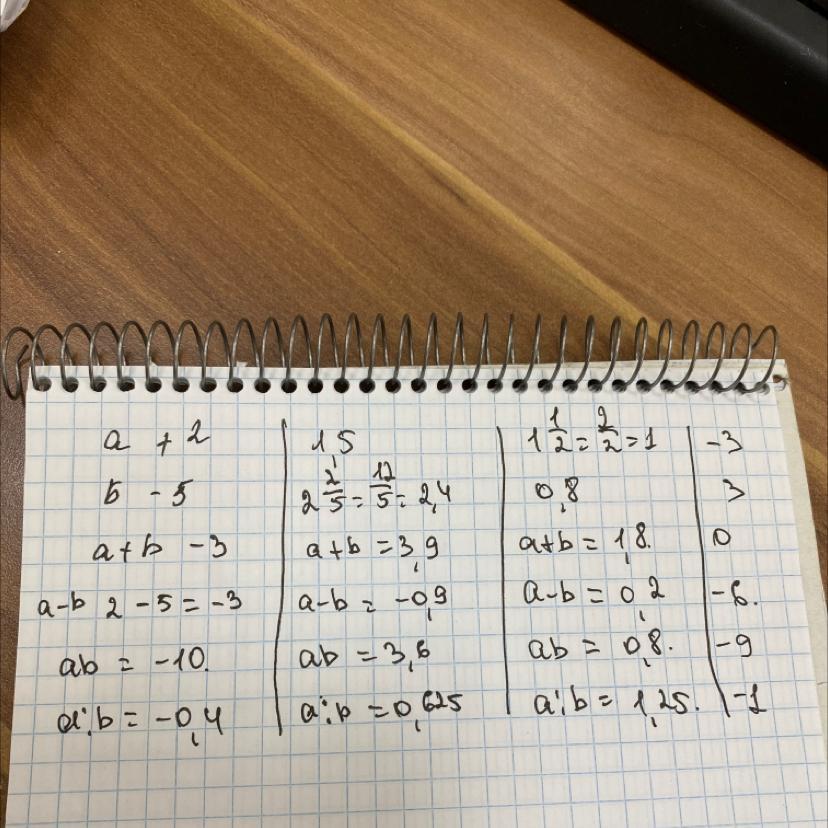 a +2 | 1,5 | 1 1/2 = 2/2 = 1 | -3
b -5 | 2 2/5 = 12/5 = 2,4 | 0,8 | 3
a+b -3 | a+b = 3,9 | a+b = 1,8. | 0
a-b 2 -5 = -3 | a-b = -0,9 | a-b = 0,2 | -6.
ab = -10. | ab = 3,6 | ab = 0,8. | -9
a:b = -0,4 | a:b = 0,625 | a:b = 1,25. | -1